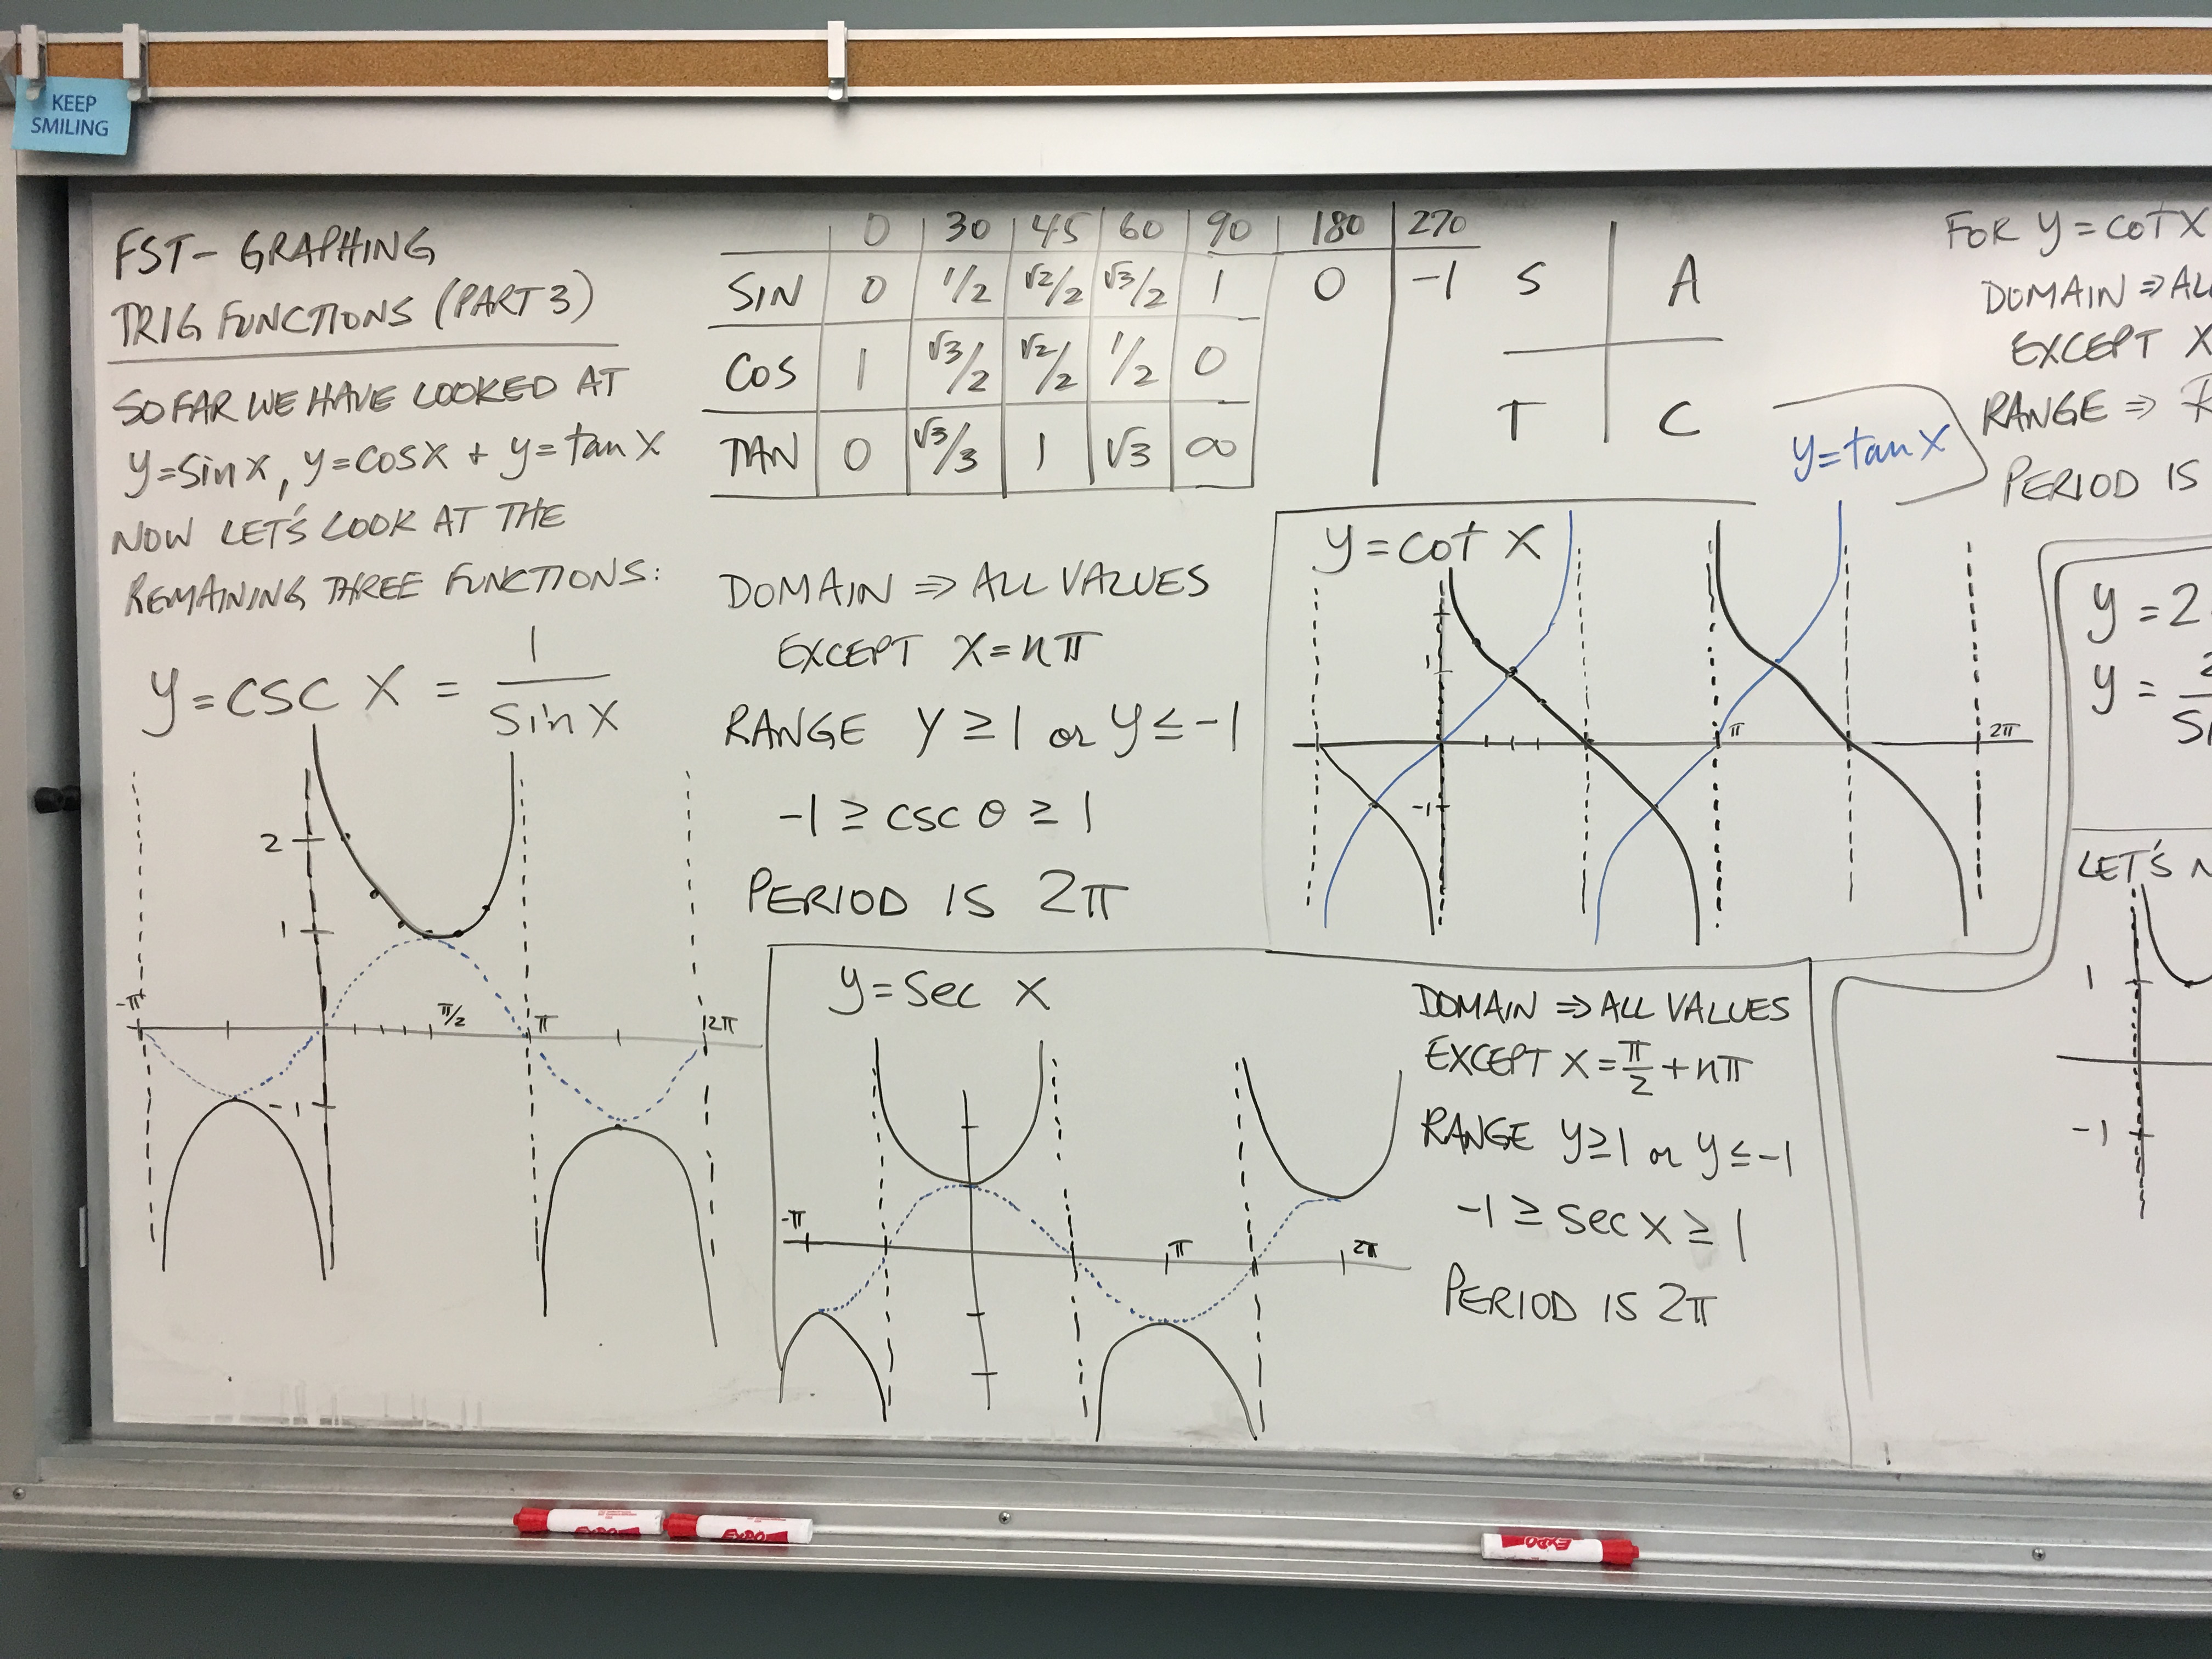 KEEP
SMILING
FST- GRAPHING
TRIG FUNCTIONS (PART 3)
SO FAR WE HAVE LOOKED AT
y=sin x, y=cos x + y=tan x
NOW LET'S LOOK AT THE
REMAINING THREE FUNCTIONS:
y=csc x = 1/sin x
2
1
-π
π/2
π
2π
-1
0 30 45 60 90 180 270
SIN 0 1/2 √2/2 √3/2 1 0 -1
COS 1 √3/2 √2/2 1/2 0
TAN 0 √3/3 1 √3 ∞
S A
T C
DOMAIN ⇒ ALL VALUES
EXCEPT x=nπ
RANGE y ≥ 1 or y ≤ -1
-1 ≥ csc θ ≥ 1
PERIOD IS 2π
y=tan x
y=cot x
1
π
2π
-1
y=sec x
-π
π
2π
DOMAIN ⇒ ALL VALUES
EXCEPT x=π/2+nπ
RANGE y≥1 or y≤-1
-1 ≥ sec x ≥ 1
PERIOD IS 2π
FOR y=cot x
DOMAIN ⇒
EXCEPT X
RANGE ⇒
PERIOD IS
y = 2
y =
LET'S
1
-1
EXPO
EXPO
EXPO